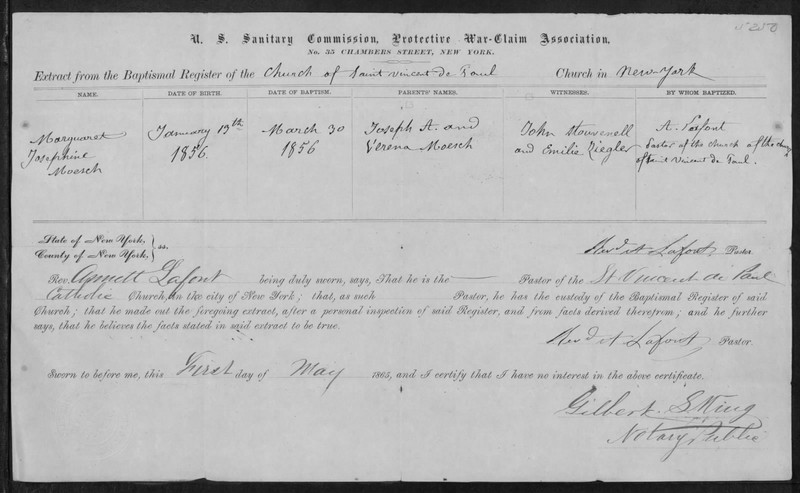 5250
U. S. Sanitary Commission, Protective War-Claim Association,
No. 35 CHAMBERS STREET, NEW YORK.
Extract from the Baptismal Register of the Church of Saint Vincent de Paul Church in New-York
NAME. DATE OF BIRTH. DATE OF BAPTISM. PARENTS' NAMES. WITNESSES. BY WHOM BAPTIZED.
Marguaret Josephine Moesch January 13th 1856. March 30 1856 Joseph A. and Verena Moesch John Stouvenell and Emilie Ziegler A. Lafont Pastor of the church of the church of Saint Vincent de Paul.
State of New York,
County of New York, } ss.
Revd A Lafont Pastor
Rev. Annett Lafont being duly sworn, says, That he is the — Pastor of the St Vincent de Paul
Catholic Church, in the city of New York; that, as such Pastor, he has the custody of the Baptismal Register of said
Church; that he made out the foregoing extract, after a personal inspection of said Register, and from facts derived therefrom; and he further
says, that he believes the facts stated in said extract to be true.
Revd A Lafont Pastor.
Sworn to before me, this First day of May 1865, and I certify that I have no interest in the above certificate.
Gilbert S King
Notary Public